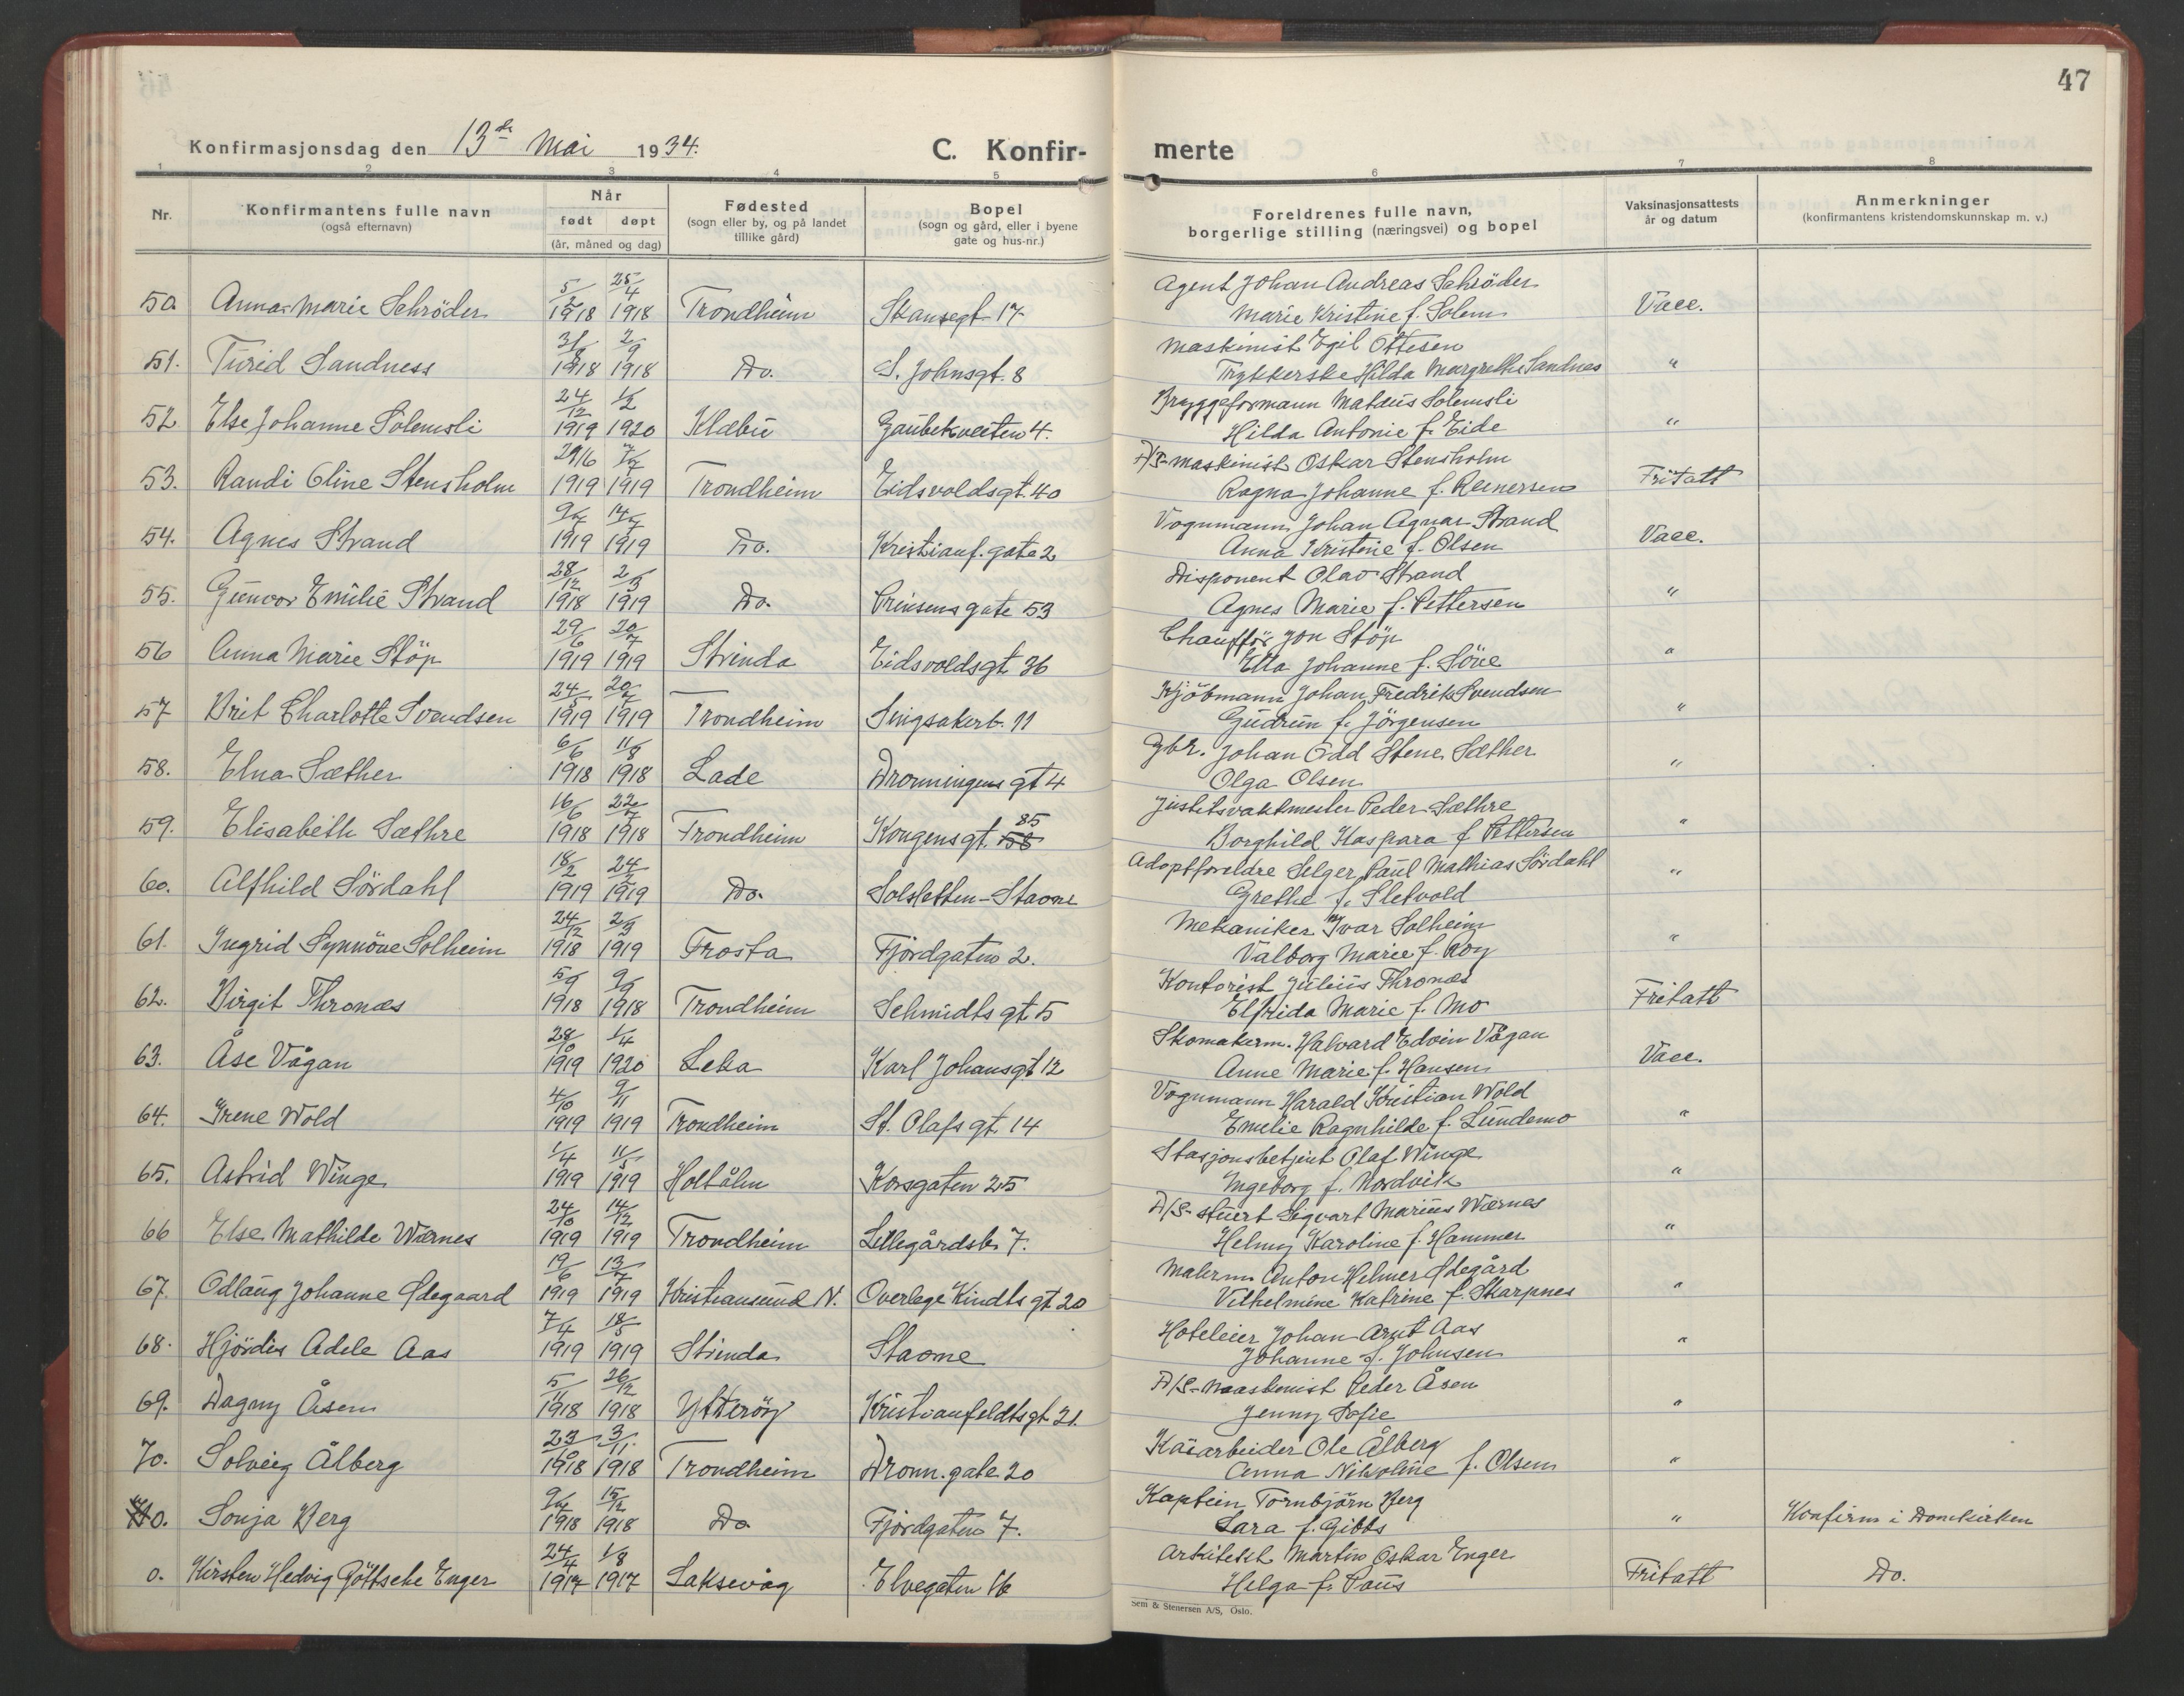 47
Konfirmasjonsdag den 13de Mai 1934.
C. Konfir-
merte
1 2 3 4 5 6 7 8
Nr.
Konfirmantens fulle navn
(også efternavn)
Når
født døpt
(år, måned og dag)
Fødested
(sogn eller by, og på landet
tillike gård)
Bopel
(sogn og gård, eller i byene
gate og hus-nr.)
Foreldrenes fulle navn,
borgerlige stilling (næringsvei) og bopel
Vaksinasjonsattests
år og datum
Anmerkninger
(konfirmantens kristendomskunnskap m. v.)
5/2 25/4 Agent Johan Andreas Schröder
50. Anna-Marie Schröder 1918 1918 Trondheim Skansegt. 17 Marie Kristine f. Solem Vacc.
31/8 2/9 Maskinist Egil Ottesen
51. Turid Sandness 1918 1918 Do. S. Johnsgt. 8 Trykkerske Hilda Margrethe Sandnes "
24/12 1/2 Bryggeformann Mateus Solemsli
52. Else Johanne Solemsli 1919 1920 Klæbu Gaubekveiten 4. Hilda Antonie f. Eide "
29/6 7/7 D/S-maskinist Oskar Stensholm
53. Randi Eline Stensholm 1919 1919 Trondheim Eidsvoldsgt. 40 Ragna Johanne f. Reinersen Fritatt
14/7 Vognmann Johan Agnar Strand
54. Agnes Strand 1919 1919 Do. Kristianf. gate 2 Anna Kristine f. Olsen Vacc.
28/12 2/3 Disponent Olav Strand
55. Gunvor Emilie Strand 1918 1919 Do. Prinsens gate 53 Agnes Marie f. Pettersen "
29/6 20/7 Chauffør Jon Støp
56 Anna Marie Støp 1919 1919 Strinda Eidsvoldsgt 36 Ella Johanne f. "
24/5 20/7 Kjöbmann Johan Fredrik Svendsen
57 Brit Charlotte Svendsen 1919 1919 Trondheim Singsakerb. 11 Gudrun f. Jörgensen "
6/6 11/8 Gbr. Johan Odd Stene Sæther
58. Elna Sæther 1918 1918 Lade Dronningens gt 4 Olga Olsen "
16/6 22/7 Justitsvaktmester Peder Sæthre
59. Elisabeth Sæthre 1918 1918 Trondheim Kongensgt. 58 85 Borghild Kaspara f. Pettersen "
18/2 24/ Adoptforeldre Selger Paul Mathias Sördahl
60. Alfhild Sördahl 1919 1919 Do. Solsletten-Stavne Grethe f. Sletvold "
24/12 2/3 Mekaniker Ivar Solheim
61. Ingrid Synnöve Solheim 1918 1919 Frosta Fjordgaten 2. Valborg Marie f. Roy "
5/ 9/ Kontorist Julius Thronæs
62. Birgit Thronæs 1918 1918 Trondheim Schmidts gt. 5 Elfrida Marie f. Mo Fritatt
28/10 1/4 Skomakerm. Halvard Edvin Vågan
63. Åse Vågan 1919 1920 Leka Karl Johansgt 12 Anne Marie f. Hansen Vacc.
4/10 9/11 Vognmann Harald Kristian Wold
64. Irene Wold 1919 1919 Trondheim St. Olafs gt. 14 Emelie Ragnhilde f. Lundemo "
1/4 11/5 Stasjonsbetjent Olaf Winge
65. Astrid Winge 1919 1919 Holtålen Korsgaten 25 Ingeborg f. Nordvik "
24/10 14/12 D/S-stuert Sigvart Marius Wærnes
66 Else Mathilde Wærnes 1919 1919 Trondheim Lillegårdsb. 7. Helmy Karoline f. Hammer "
19/6 13/7 Malerm. Anton Helmer Ødegård
67. Odlaug Johanne Ødegaard 1919 1919 Kristiansund N. Overlege Kindts gt 20 Vilhelmine Katrine f. Skarpnes "
7/4 18/5 Hoteleier Johan Arnt Aas
68. Hjördis Adele Aas 1919 1919 Strinda Stavne Johanne f. Johnsen "
5/11 26/12 D/S-maskinist Peder Åsen
69. Dagny Åsen 1918 1918 Ytterøy Kristianfeldtsgt 21. Jenny Sofie "
23/10 3/11 Kaiarbeider Ole Ålberg
70. Solveig Ålberg 1918 1918 Trondheim Dronn. gate 20 Anna Nikoline f. Olsen "
15/12 Kaptein Tornbjörn Berg
0. Sonja Berg 1918 1918 Do Fjordgaten 7. Sara f. Gibbs " Konfirm i Domkirken
24/4 1/8 Arkitekt Martin Oskar Enger
0. Kirsten Hedvig Göttsche Enger 1917 1917 Laksevåg Elvegaten 16 Helga f. Paus Fritatt Do.
Sem & Stenersen A/S, Oslo.